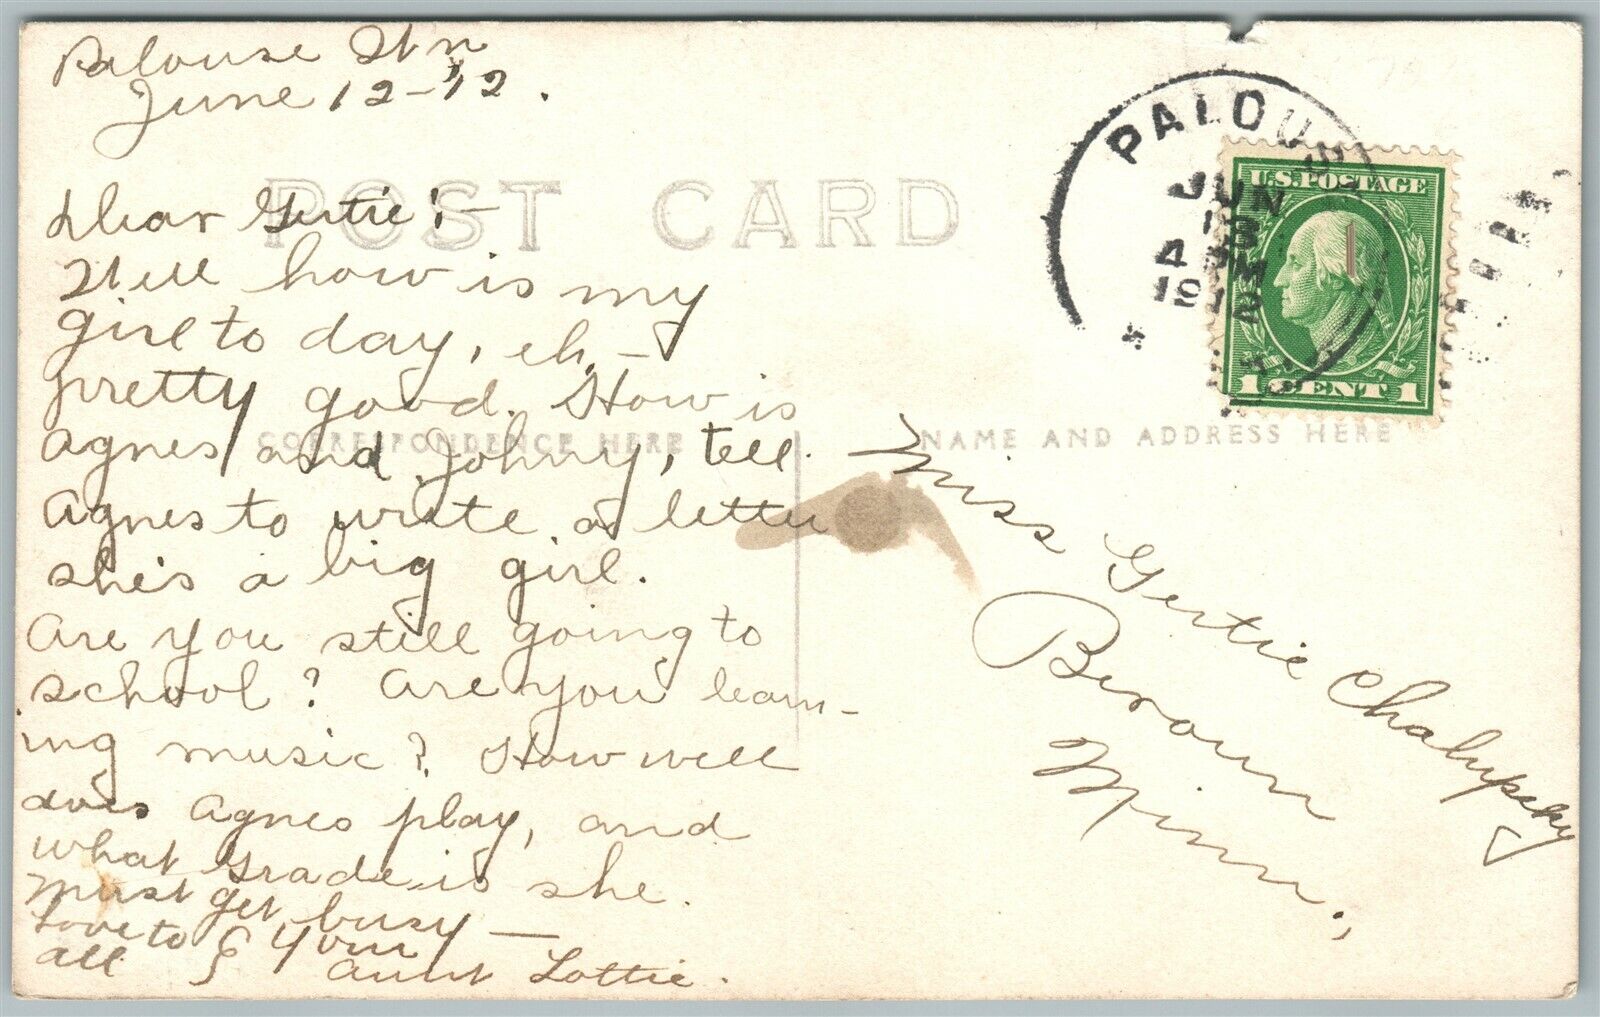 Palouse Wn
June 12-'12.
POST CARD
Dear Gertie:-
Well how is my
girl to day, eh, -
pretty good. How is
CORRESPONDENCE HERE
Agnes and Johny, tell
Agnes to write a letter
she's a big girl.
Are you still going to
school? Are you learn-
ing music? How well
does Agnes play, and
what grade is she.
Must get busy —
Love to & Your
all Aunt Lottie.
PALOUSE
JUN
13
4 PM
1912
U.S. POSTAGE
1 CENT 1
NAME AND ADDRESS HERE
Miss Gertie Chalupsky
Berown
Minn.,